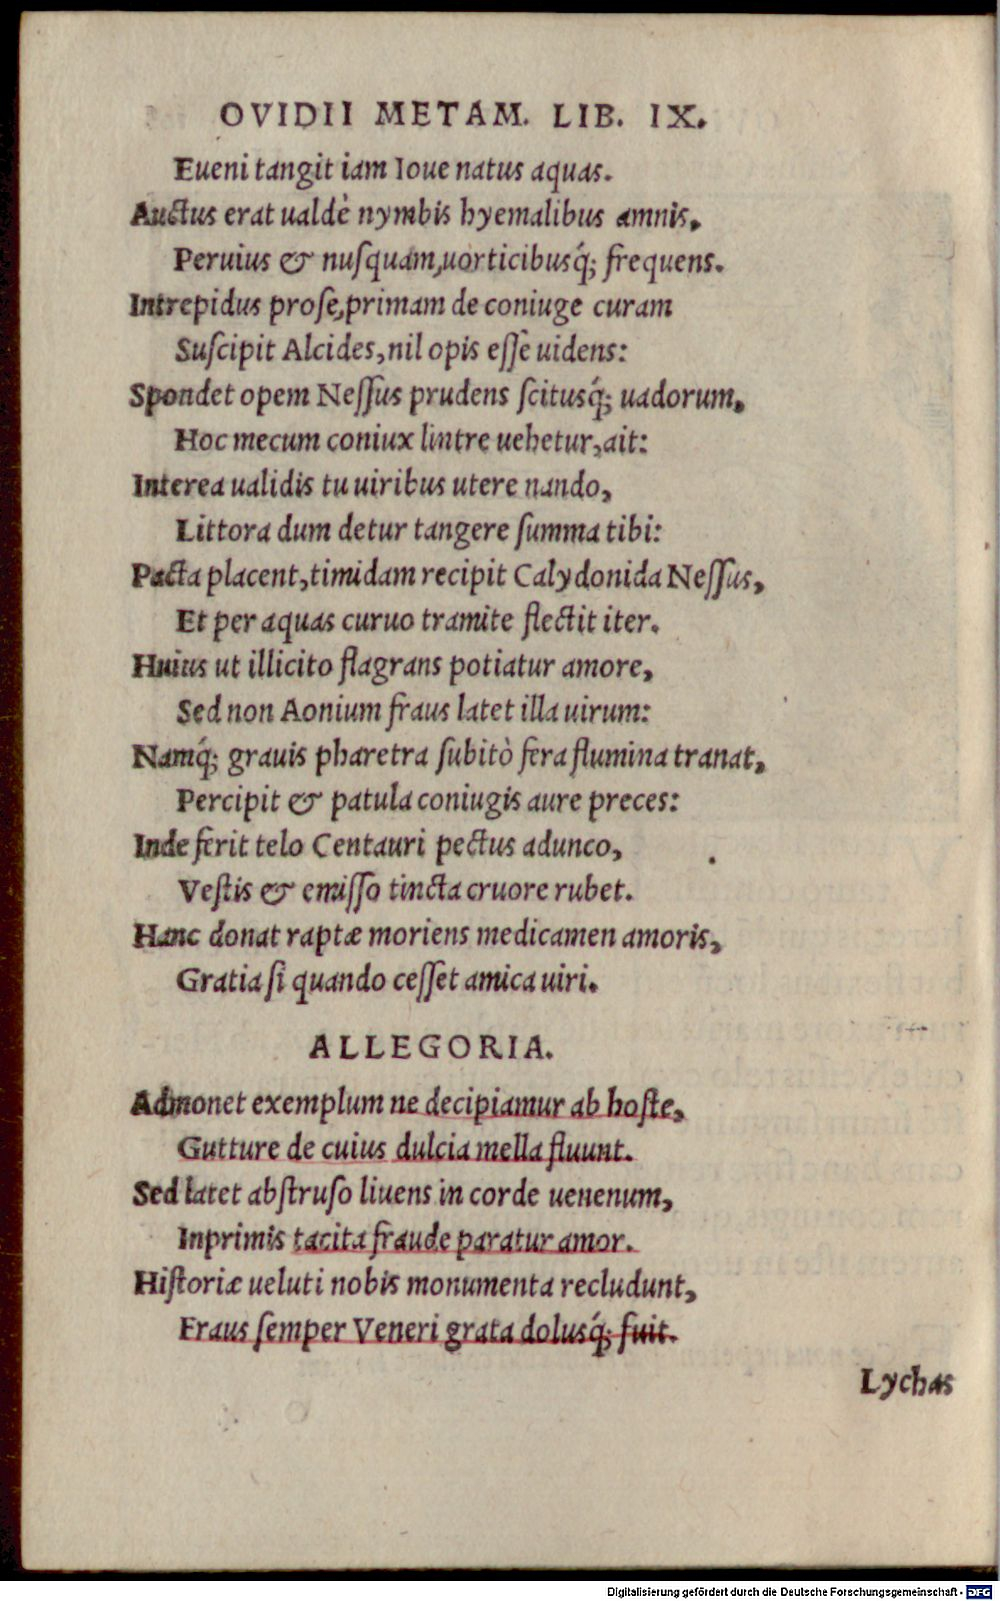 OVIDII METAM. LIB. IX.
Eueni tangit iam Ioue natus aquas.
Auctus erat ualdè nymbis hyemalibus amnis,
Peruius & nuſquam, uorticibusq́; frequens.
Intrepidus pro ſe, primam de coniuge curam
Suſcipit Alcides, nil opis eſſe uidens:
Spondet opem Neſſus prudens ſcitusq́; uadorum,
Hoc mecum coniux lintre uehetur, ait:
Interea ualidis tu uiribus utere nando,
Littora dum detur tangere ſumma tibi:
Pacta placent, timidam recipit Calydonida Neſſus,
Et per aquas curuo tramite flectit iter.
Huius ut illicito flagrans potiatur amore,
Sed non Aonium fraus latet illa uirum:
Namq́; grauis pharetra ſubitò fera flumina tranat,
Percipit & patula coniugis aure preces:
Inde ferit telo Centauri pectus adunco,
Veſtis & emiſſo tincta cruore rubet.
Hanc donat raptæ moriens medicamen amoris,
Gratia ſi quando ceſſet amica uiri.
ALLEGORIA.
Admonet exemplum ne decipiamur ab hoſte,
Gutture de cuius dulcia mella fluunt.
Sed latet abſtruſo liuens in corde uenenum,
Inprimis tacita fraude paratur amor.
Hiſtoriæ ueluti nobis monumenta recludunt,
Fraus ſemper Veneri grata dolusq́; fuit.
Lychas
Digitalisierung gefördert durch die Deutsche Forschungsgemeinschaft - DFG